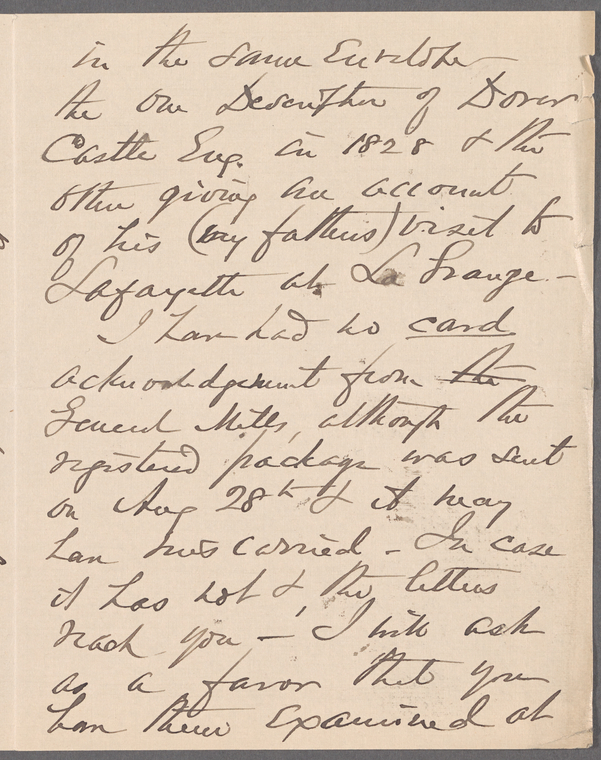 in the same Envelope
the one Description of Dover
Castle Eng. in 1828 & the
other giving an account
of his (my fathers) visit to
Lafayette at La Grange -
I have had no card
acknowledgement from the
General Mills, although the
registered package was sent
on Aug 28th & it may
have miscarried - In case
it has not &, the letters
reach you - I will ask
as a favor that you
have them examined at